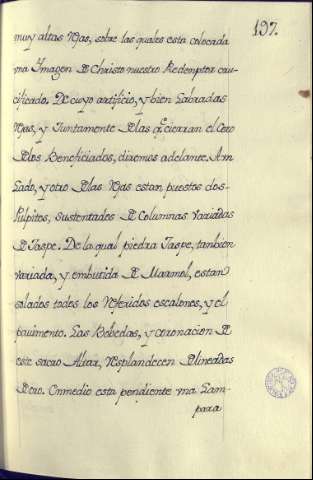 197.
muy altas Rejas, sobre las quales està colocada
vna Imagen de Christo nuestro Redemptor cru-
cificado. De cuyo artificio, y bien labradas
Rejas, y Juntamente de las q̃ cierran el Coro
de los Beneficiados, diremos adelante. A vn
lado, y otro de las Rejas estan puestos dos
Pulpitos, sustentados de Columnas variadas
de Jaspe. De la qual piedra Jaspe, tambien
variada, y embutida de Marmol, estan
solados todos los referidos escalones, y el
pauimento. Las Bobedas, y coronacion de
este sacro Altar, Resplandecen delineadas
de oro. En medio esta pendiente vna Lam-
para